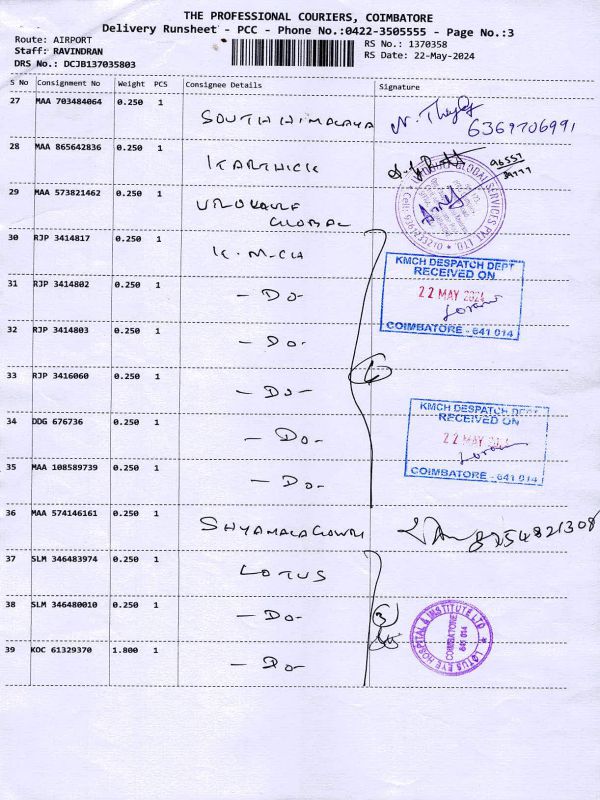 THE PROFESSIONAL COURIERS, COIMBATORE
Delivery Runsheet - PCC - Phone No.:0422-3505555 - Page No.:3
Route: AIRPORT
RS No.: 1370358
Staff: RAVINDRAN
RS Date: 22-May-2024
DRS No.: DCJB137035803
S No Consignment No Weight PCS Consignee Details Signature
27 MAA 703484064 0.250 1 SOUTH HIMALAYA
6369706991
28 MAA 865642836 0.250 1 KARTHICK
29 MAA 573821462 0.250 1
GLOBAL
GLOBAL SERVICES PVT LTD
30 RJP 3414817 0.250 1 K.M.CH
KMCH DESPATCH DEPT
RECEIVED ON
22 MAY 2024
COIMBATORE - 641 014
31 RJP 3414802 0.250 1 - Do -
32 RJP 3414803 0.250 1 - Do -
33 RJP 3416060 0.250 1 - Do -
34 DDG 676736 0.250 1 - Do -
KMCH DESPATCH DEPT
RECEIVED ON
22 MAY 2024
COIMBATORE - 641 014
35 MAA 108589739 0.250 1 - Do -
36 MAA 574146161 0.250 1 SHYAMALA GOWRI
8254821308
37 SLM 346483974 0.250 1 LOTUS
38 SLM 346480010 0.250 1 - Do -
3
LOTUS EYE HOSPITAL & INSTITUTE LTD
COIMBATORE
641 014
39 KOC 61329370 1.800 1 - Do -